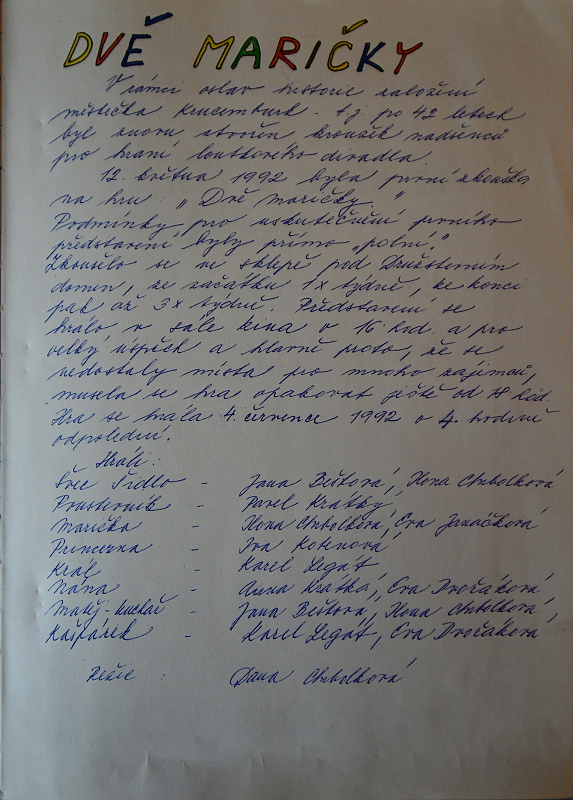 DVĚ MARIČKY
V rámci oslav historie založení
městečka Krucemburk - t.j. po 42 letech
byl znovu stvořen kroužek nadšenců
pro hraní loutkového divadla.
12. května 1992 byla první zkouška
na hru: „Dvě maričky."
Podmínky pro uskutečnění prvního
představení byly přímo „polní."
Zkoušelo se ve sklepě pod Družstevním
domem, ze začátku 1x týdně, ke konci
pak až 3x týdně. Představení se
hrálo v sále kina v 16 hod. a pro
velký úspěch a hlavně proto, že se
nedostaly místa pro mnoho zájemců,
musela se hra opakovat ještě od 18 hod.
Hra se hrála 4. července 1992 o 4. hodině
odpolední.
Hráli:
Švec Šídlo - Jana Beštová, Ilona Chrbolková
Poustevník - Pavel Krátký
Marička - Ilona Chrbolková, Eva Janáčková
Princezna - Iva Kotenová
Král - Karel Legát
Nána - Anna Krátká, Eva Dvořáková
Matěj-kuchař - Jana Beštová, Ilona Chrbolková,
Kašpárek - Karel Legát, Eva Dvořáková
Režie: Dana Chrbolková